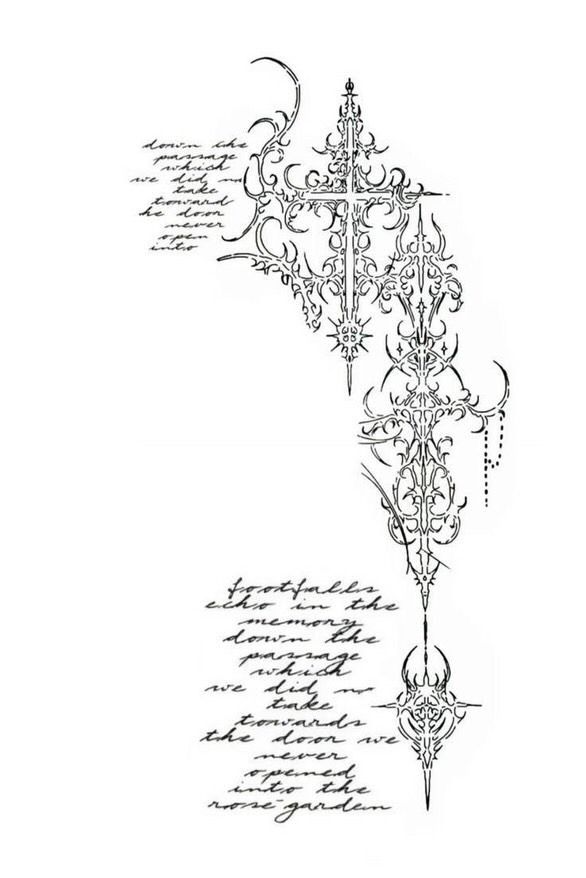 down the
passage
which
we did no
take
toward
he door
never
open
into
footfalls
echo in the
memory
down the
passage
which
we did no
take
towards
the door we
never
opened
into the
rose-garden